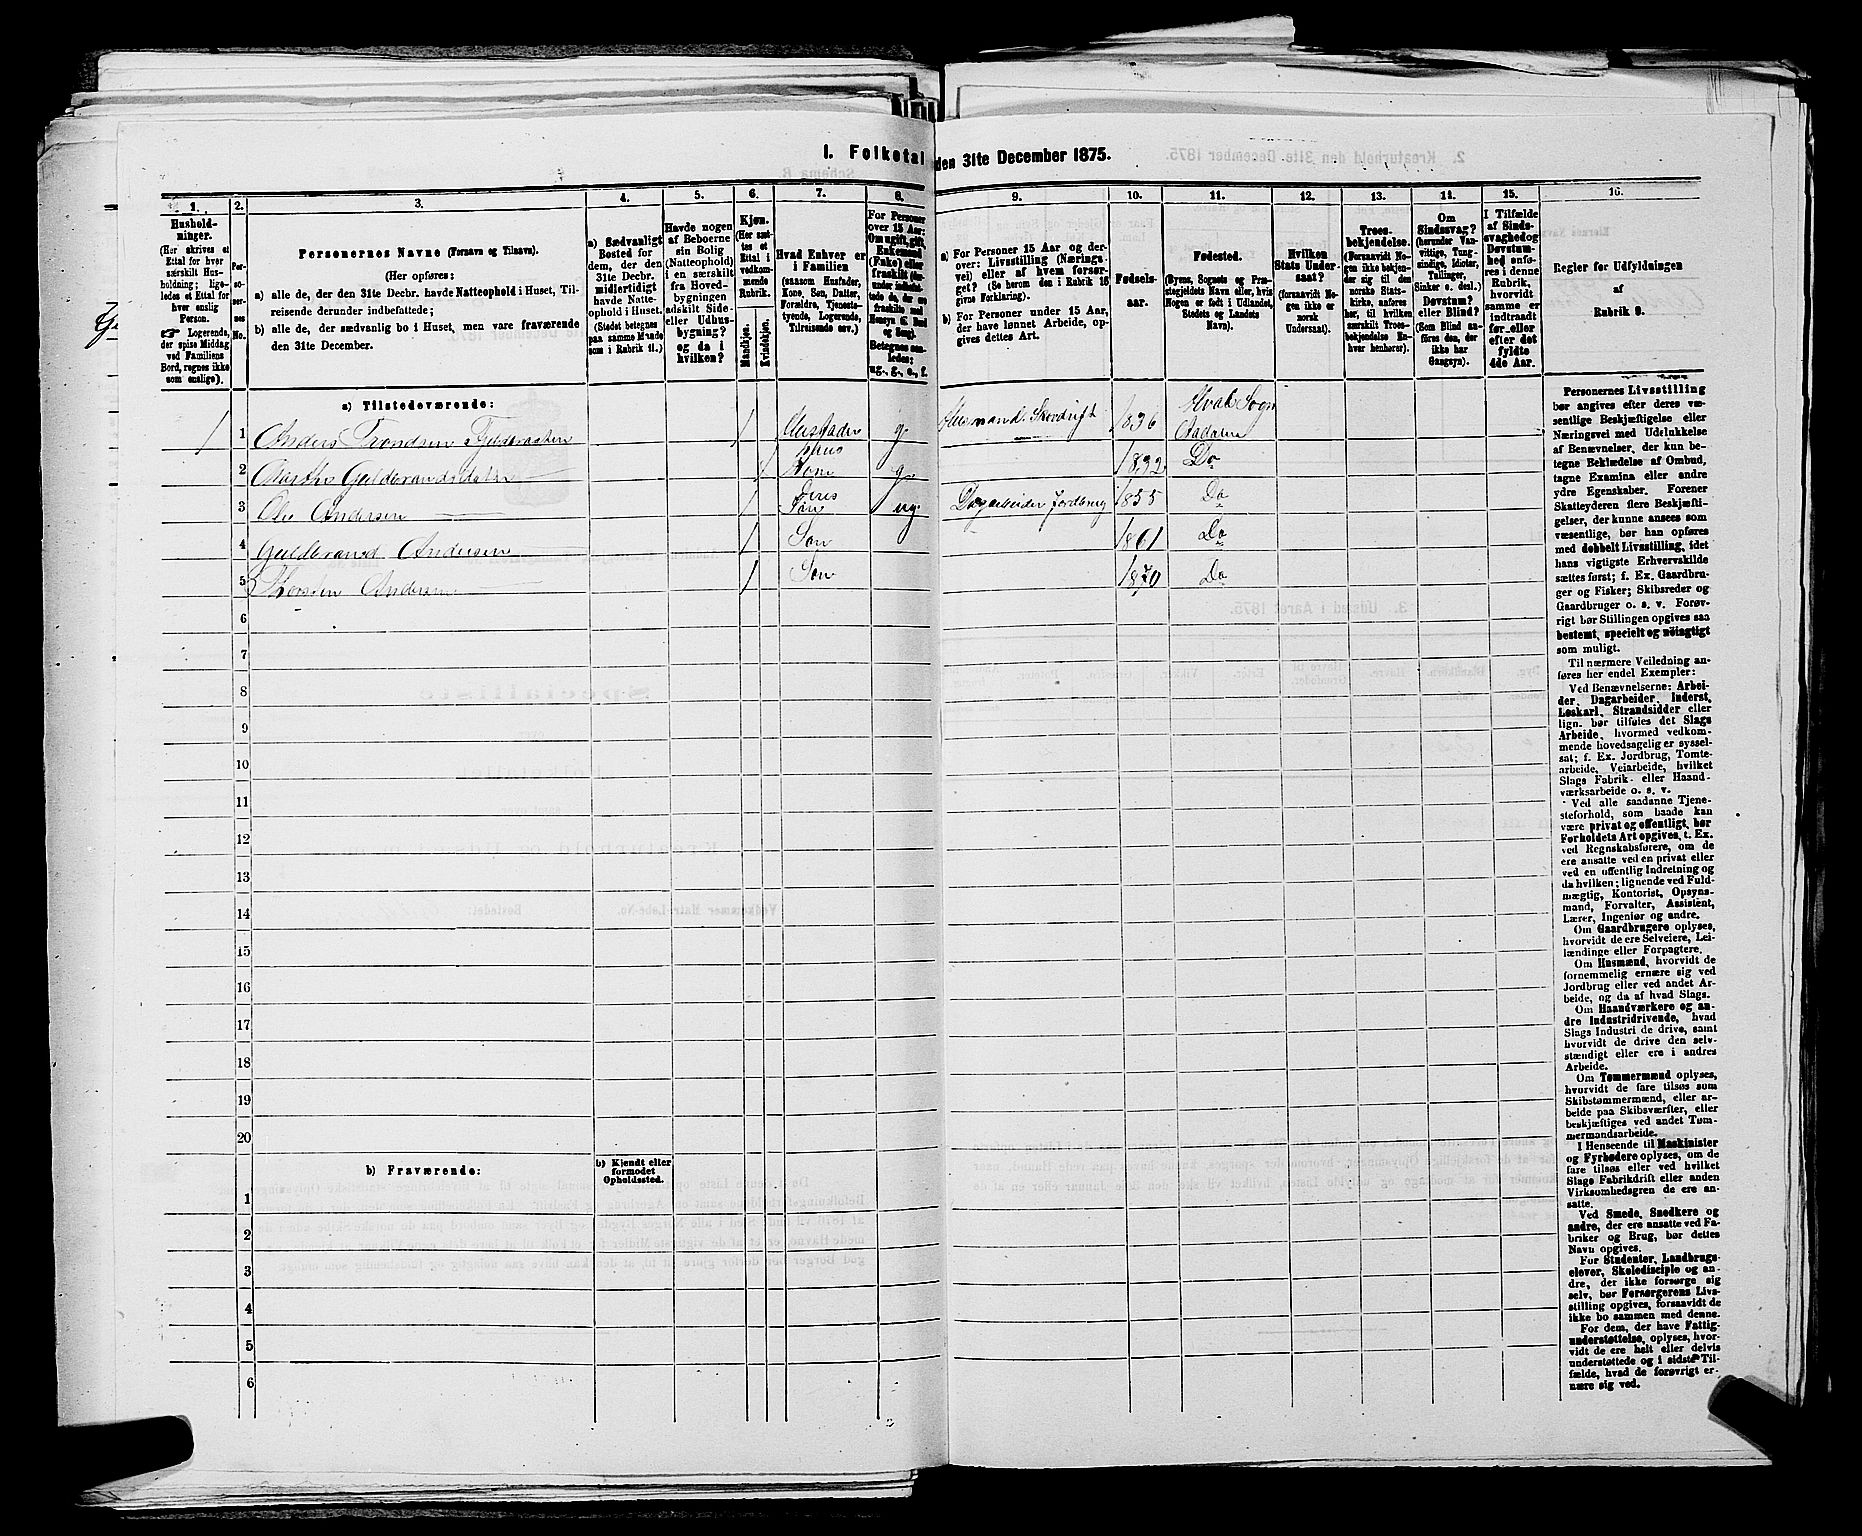 I. Folketal den 31te December 1875.
1. 2. 3. 4. 5. 6. 7. 8. 9. 10. 11. 12. 13. 14. 15. 16.
Hushold-
ninger.
(Her skrives et
Ettal for hver
særskilt Hus-
holdning; lige-
ledes et Ettal for
hver enslig
Person.
☞ Logerende,
der spise Middag
ved Familiens
Bord, regnes ikke
som enslige).
Per-
so-
ner-
nes
No.
Personernes Navne (Fornavn og Tilnavn).
(Her opføres:
a) alle de, der den 31te Decbr. havde Natteophold i Huset, Til-
reisende derunder indbefattede;
b) alle de, der sædvanlig bo i Huset, men vare fraværende
den 31te December.
a) Sædvanligt
Bosted for
dem, der den
31te Decbr.
midlertidigt
havde Natte-
ophold i Huset.
(Stedet betegnes
paa samme Maade
som i Rubrik 11.)
Havde nogen
af Beboerne
sin Bolig
(Natteophold)
i en særskilt
fra Hoved-
bygningen
adskilt Side-
eller Udhus-
bygning?
og da i
hvilken?
Kjøn.
(Her sæt-
tes et
Ettal i
vedkom-
mende
Rubrik.)
Mandkjøn.
Kvindekjøn.
Hvad Enhver er
i Familien
(saasom Husfader,
Kone, Søn, Datter,
Forældre, Tjeneste-
tyende, Logerende,
Tilreisende osv.)
For Personer
over 15 Aar:
Om ugift, gift,
Enkemand
(Enke) eller
fraskilt
Betegnes saa-
ledes:
ug., g., e., f.
a) For Personer 15 Aar og der-
over: Livsstilling (Nærings-
vei) eller af hvem forsør-
get? (Se herom den i Rubrik 16
givne Forklaring).
b) For Personer under 15 Aar,
der have lønnet Arbeide, op-
gives dettes Art.
Fødsels-
aar.
Fødested.
(Byens, Sognets og Præ-
stegjeldets Navn eller, hvis
Nogen er født i Udlandet,
Stedets og Landets
Navn).
Hvilken
Stats Under-
saat?
(forsaavidt No-
gen ikke er
norsk
Undersaat).
Troes-
bekjendelse.
(Forsaavidt No-
gen ikke bekjen-
der sig til den
norske Stats-
kirke, anføres
her, til hvilken
særskilt Troes-
bekjendelse En-
hver henhører).
Om
Sindssvag?
(herunder Van-
vittige, Tung-
sindige, Idioter,
Tullinger,
Sinker o. desl.)
Døvstum?
eller Blind?
(Som Blind an-
føres den, der
ikke har
Gangsyn).
I Tilfælde
af Sinds-
svaghed og
Døvstum-
hed an-
føres i denne
Rubrik,
hvorvidt
samme er
indtraadt
før eller
efter det
fyldte
4de Aar.
Regler for Udfyldningen
af
Rubrik 9.
a) Tilstedeværende:
1 1 Anders Trondsen 1 Husfader g. Husmand. Skovdrift 1836 Hval Sogn Aadalen
2 Marthe Guldbrandsdatter 1 hans Kone g. 1832 Do
3 Ole Andersen 1 deres Søn ug. Dagarbeider Jordbrug 1855 Do
4 Guldbrand Andersen 1 Søn 1861 Do
5 Thorsten Andersen 1 Søn 1870 Do
6
7
8
9
10
11
12
13
14
15
16
17
18
19
20
b) Fraværende:
b) Kjendt eller
formodet
Opholdssted.
1
2
3
4
5
6
Personernes Livsstilling
bør angives efter deres væ-
sentlige Beskjæftigelse eller
Næringsvei med Udelukkelse
af Benævnelser, der kun be-
tegne Beklædelse af Ombud,
tagne Examina eller andre
ydre Egenskaber. Forener
Skatteyderen flere Beskjæfti-
gelser, der kunne ansees som
væsentlige, bør han opføres
med dobbelt Livsstilling, idet
hans vigtigste Erhvervskilde
sættes først; f. Ex. Gaardbru-
ger og Fisker; Skibsreder og
Gaardbruger o. s. v. Forøv-
rigt bør Stillingen opgives saa
bestemt, specielt og nøiagtigt
som muligt.
Til nærmere Veiledning an-
føres her endel Exempler:
Ved Benævnelserne: Arbei-
der, Dagarbeider, Inderst,
Løskarl, Strandsidder eller
lign. bør tilføies det Slags
Arbeide, hvormed vedkom-
mende hovedsagelig er syssel-
sat; f. Ex. Jordbrug, Tomte-
arbeide, Veiarbeide, hvilket
Slags Fabrik- eller Haand-
værksarbeide o. s. v.
Ved alle saadanne Tjene-
steforhold, som baade kan
være privat og offentligt, bør
Forholdets Art opgives, t. Ex.
ved Regnskabsførere, om de
ere ansatte ved en privat eller
ved en offentlig Indretning og
da hvilken; lignende ved Fuld-
mægtig, Kontorist, Opsyns-
mand, Forvalter, Assistent,
Lærer, Ingeniør og andre.
Om Gaardbrugere oplyses,
hvorvidt de ere Selveiere, Lei-
lændinge eller Forpagtere.
Om Husmænd, hvorvidt de
fornemmelig ernære sig ved
Jordbrug eller ved andet Ar-
beide, og da af hvad Slags.
Om Haandværkere og an-
dre Industridrivende, hvad
Slags Industri de drive, samt
hvorvidt de drive den selv-
stændigt eller ere i andres
Arbeide.
Om Tømmermænd oplyses,
hvorvidt de fare tilsøs som
Skibstømmermænd, eller ar-
beide paa Skibsværfter, eller
beskjæftiges ved andet Tøm-
mermandsarbeide.
I Henseende til Maskinister
og Fyrbødere oplyses, om de
fare tilsøs eller ved hvilket
Slags Fabrikdrift eller anden
Virksomhedsgren de ere an-
satte.
Ved Smede, Snedkere og
andre, der ere ansatte ved Fa-
briker og Brug, bør dettes
Navn opgives.
For Studenter, Landbrugs-
elever, Skoledisciple og an-
dre, der ikke forsørge sig
selv, bør Forsørgerens Livs-
stilling opgives, forsaavidt de
ikke bo sammen med denne.
For dem, der have Fattig-
understøttelse, oplyses, hvor-
vidt de ere helt eller delvis
understøttede og i sidste Til-
fælde, hvad de forøvrigt er-
nære sig ved.